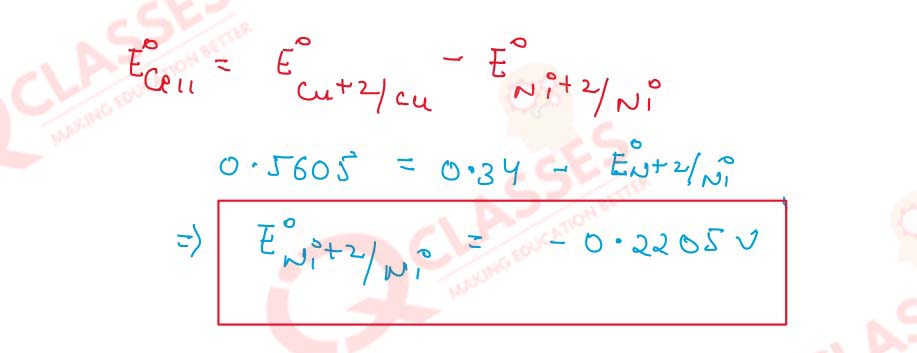 E°Cell = E°Cu+2/Cu - E°Ni+2/Ni
0.5605 = 0.34 - E°N+2/Ni
⇒ E°Ni+2/Ni = - 0.2205 V
CLASSES
MAKING EDUCATION BETTER
CLASSES
MAKING EDUCATION BETTER